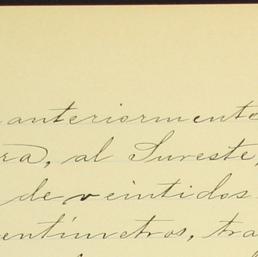 anteriormente
ra, al Sureste,
de veintidos
entímetros, tra